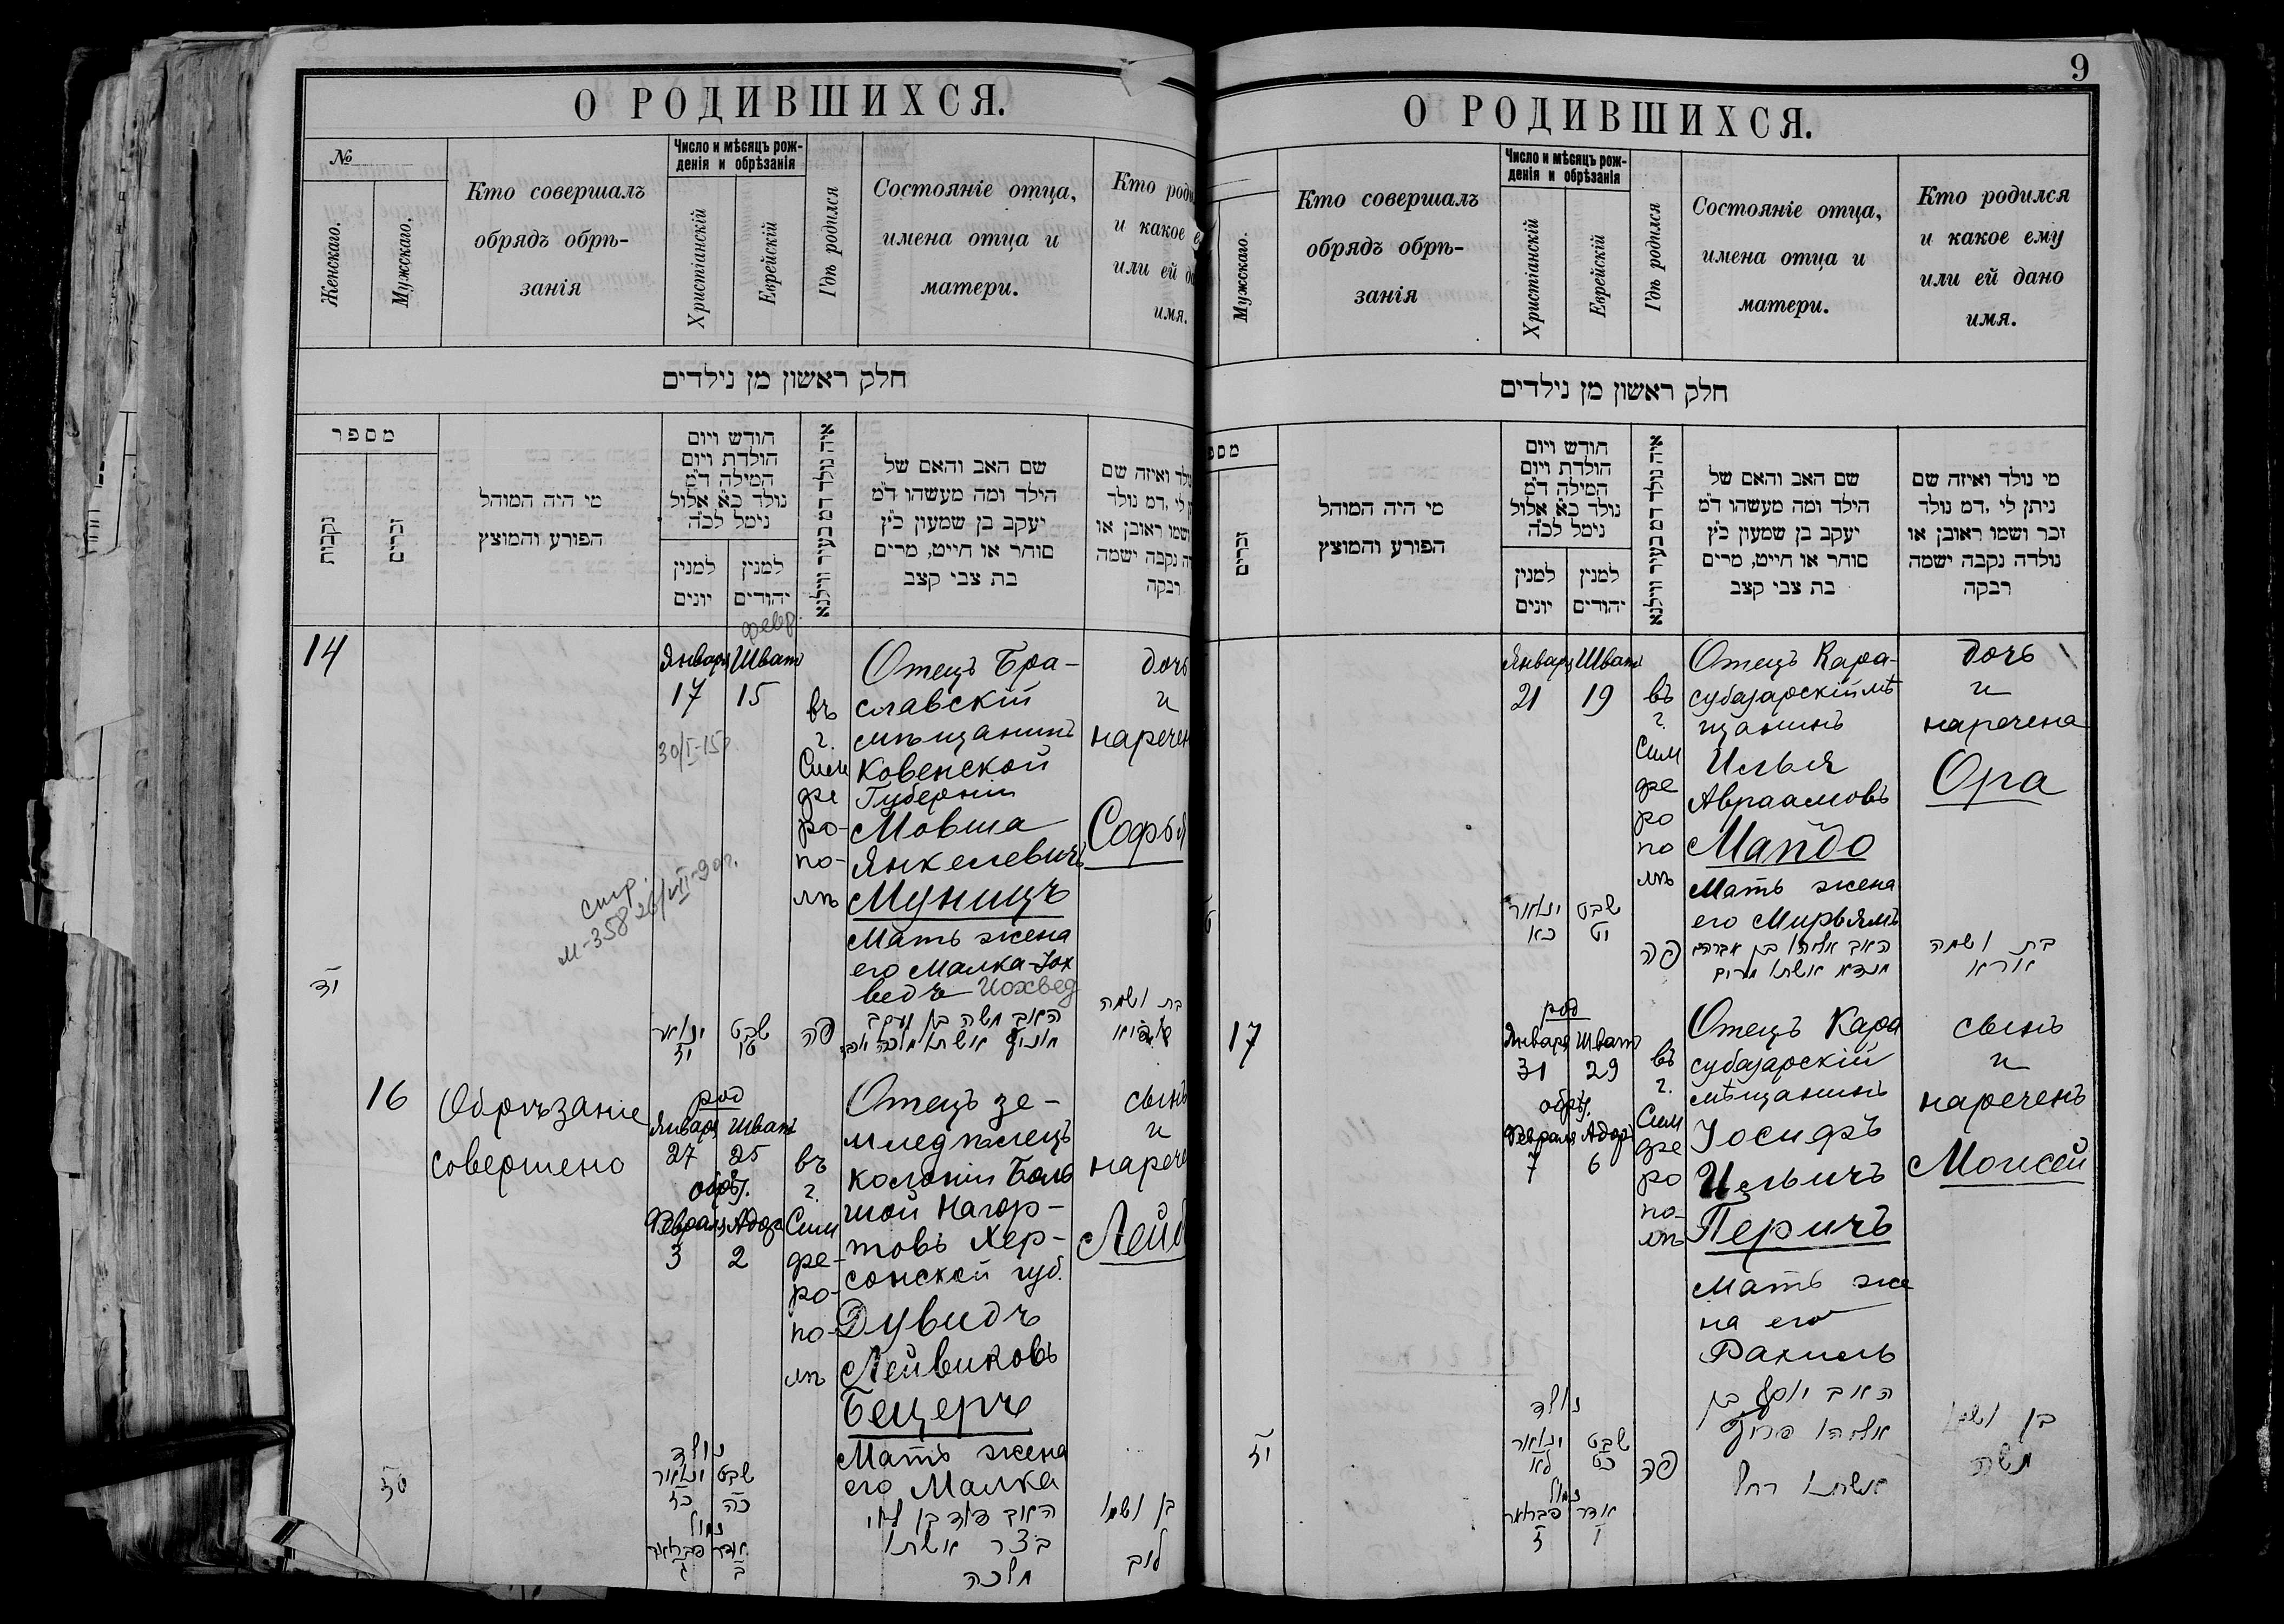 О РОДИВШИХСЯ.
№
Женскаго.
Мужскаго.
Кто совершалъ
обрядъ обрѣ-
занія
Число и мѣсяцъ рож-
денія и обрѣзанія
Христіанскій
Еврейскій
Гдѣ родился
Состояніе отца,
имена отца и
матери.
Кто роди
и какое е
или ей да
имя.
חלק ראשון מן נילדים
מספר
נקבות
זכרים
מי היה המוהל
הפורע והמוצץ
חודש ויום
הולדת ויום
המילה ד״מ
נולד כ״א אלול
נימל לכ״ה
למנין
יונים
למנין
יהודים
איה נולד דמ בעיר ווילנא
שם האב והאם של
הילד ומה מעשהו ד״מ
יעקב בן שמעון כ״ץ
סוחר או חייט, מרים
בת צבי קצב
ולד ואיזה שם
לי .דמ נולד
ושמו ראובן או
ה נקבה ישמה
רבקה
февр.
14
Января Шватъ
17 15
30/I-15
въ
г.
Сим
фе
ро-
по-
лѣ
Отецъ Бра-
славскій
мѣщанинъ
Ковенской
Губерніи
Мовша
Янкелевичъ
Муницъ
Мать жена
его Малка-Іох
ведъ Иохвед
дочь
и
наречен
Софья
спр.
М-358 26/VII-90г.
יד
ינואר
יז
שבט
טו
פה
האב משה בן יעקב
מוניץ אשתו מלכה יוכבד
בת ושמה
16
Обрѣзаніе
совершено
род
Января Шватъ
27 25
обрѣз.
Февраля Адаръ
3 2
въ
г.
Сим
фе-
ро-
по-
лѣ
Отецъ зе-
мледѣлецъ
колоніи Боль
шой Нагор-
товъ Хер-
сонской губ.
Дувидъ
Лейвиковъ
Бецеръ
Мать жена
его Малка
сынъ
и
нарече
Лейб
טז
נולד
ינואר שבט
כז כה
נמול
פברואר אדר
ג ב
האב דוד בן לוי
בצר אשתו
מלכה
בן ושמו
לוב
9
О РОДИВШИХСЯ.
Мужскаго.
Кто совершалъ
обрядъ обрѣ-
занія
Число и мѣсяцъ рож-
денія и обрѣзанія
Христіанскій
Еврейскій
Гдѣ родился
Состояніе отца,
имена отца и
матери.
Кто родился
и какое ему
или ей дано
имя.
חלק ראשון מן נילדים
מספ
זכרים
מי היה המוהל
הפורע והמוצץ
חודש ויום
הולדת ויום
המילה ד״מ
נולד כ״א אלול
נימל לכ״ה
למנין
יונים
למנין
יהודים
איה נולד דמ בעיר ווילנא
שם האב והאם של
הילד ומה מעשהו ד״מ
יעקב בן שמעון כ״ץ
סוחר או חייט, מרים
בת צבי קצב
מי נולד ואיזה שם
ניתן לי .דמ נולד
זכר ושמו ראובן או
נולדה נקבה ישמה
רבקה
Января Шватъ
21 19
въ
г.
Сим
фе
ро
по
лѣ
Отецъ Кара-
субазарскій мѣ
щанинъ
Илья
Авраамовъ
Мандо
Мать жена
его Мирьямъ
дочь
и
наречена
Ора
ינואר
כא
שבט
יט
פה
האב אליהו בן אברהם
מנדא אשתו מרים
בת ושמה
אורא
17
род
Января Шватъ
31 29
обрѣз.
Февраля Адаръ
7 6
въ
г.
Сим
фе
ро
по-
лѣ
Отецъ Кара
субазарскій
мѣщанинъ
Іосифъ
Ильичъ
Перичъ
Мать же
на его
Рахиль
сынъ
и
нареченъ
Моисей
יז
נולד
ינואר שבט
לא כט
נמול
פברואר אדר
ז ו
פה
האב יוסף בן
אליהו פריץ
אשתו רחל
בן ושמו
משה